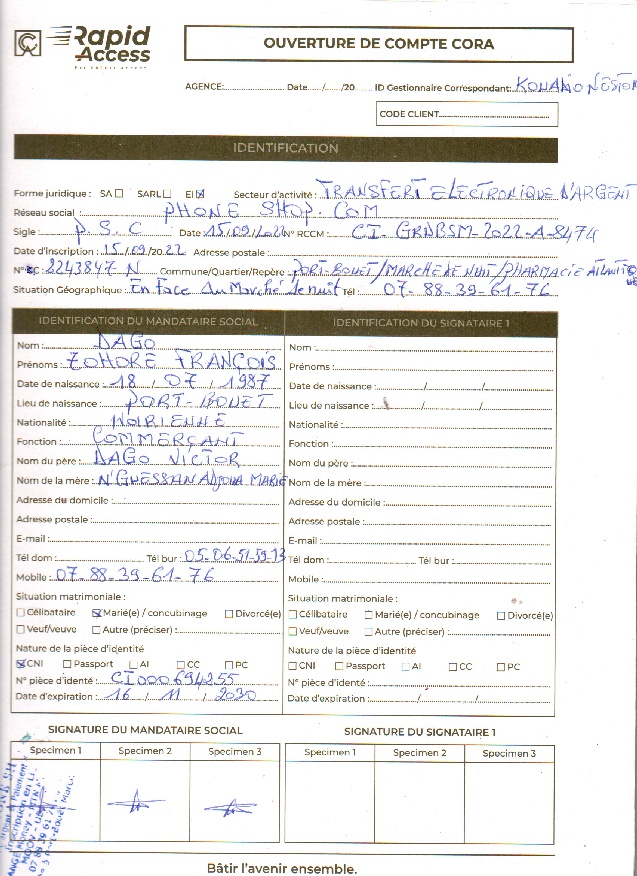 Rapid Access
OUVERTURE DE COMPTE CORA
AGENCE: Date / /20 ID Gestionnaire Correspondant: KOUAHO NESTOR
CODE CLIENT
IDENTIFICATION
Forme juridique : SA ☐ SARL ☐ EI ☒ Secteur d'activité : TRANSFERT ELECTRONIQUE D'ARGENT
Réseau social : PHONE SHOP. COM
Sigle P. S. C Date : 15/09/2022 N° RCCM : CI. GRDBSM-2022-A-8474
Date d'Inscription : 15/09/2022 Adresse postale :
N° CC : 2243847 N Commune/Quartier/Repère : PORT-BOUET/MARCHE DE NUIT/PHARMACIE ATLANTIQUE
Situation Géographique : En Face du Marché de nuit Tél : 07-88-39-61-76
IDENTIFICATION DU MANDATAIRE SOCIAL
Nom : DAGO
Prénoms : ZOHORE FRANÇOIS
Date de naissance : 18 / 07 / 1987
Lieu de naissance : PORT-BOUET
Nationalité : IVOIRIENNE
Fonction : COMMERÇANT
Nom du père : DAGO VICTOR
Nom de la mère : N'GUESSAN ADJOUA MARIE
Adresse du domicile :
Adresse postale :
E-mail :
Tél dom : Tél bur : 05-06-51-39-13
Mobile : 07-88-39-61-76
Situation matrimoniale :
☐ Célibataire ☒ Marié(e) / concubinage ☐ Divorcé(e)
☐ Veuf/veuve ☐ Autre (préciser) :
Nature de la pièce d'identité
☒ CNI ☐ Passport ☐ AI ☐ CC ☐ PC
N° pièce d'identé : CI000694255
Date d'expiration : 16 / 11 / 2030
IDENTIFICATION DU SIGNATAIRE 1
Nom :
Prénoms :
Date de naissance : / /
Lieu de naissance : / /
Nationalité :
Fonction :
Nom du père :
Nom de la mère :
Adresse du domicile :
Adresse postale :
E-mail :
Tél dom : Tél bur :
Mobile :
Situation matrimoniale :
☐ Célibataire ☐ Marié(e) / concubinage ☐ Divorcé(e)
☐ Veuf/veuve ☐ Autre (préciser) :
Nature de la pièce d'identité
☐ CNI ☐ Passport ☐ AI ☐ CC ☐ PC
N° pièce d'identité :
Date d'expiration : / /
SIGNATURE DU MANDATAIRE SOCIAL
Specimen 1 Specimen 2 Specimen 3
SIGNATURE DU SIGNATAIRE 1
Specimen 1 Specimen 2 Specimen 3
Bâtir l'avenir ensemble.